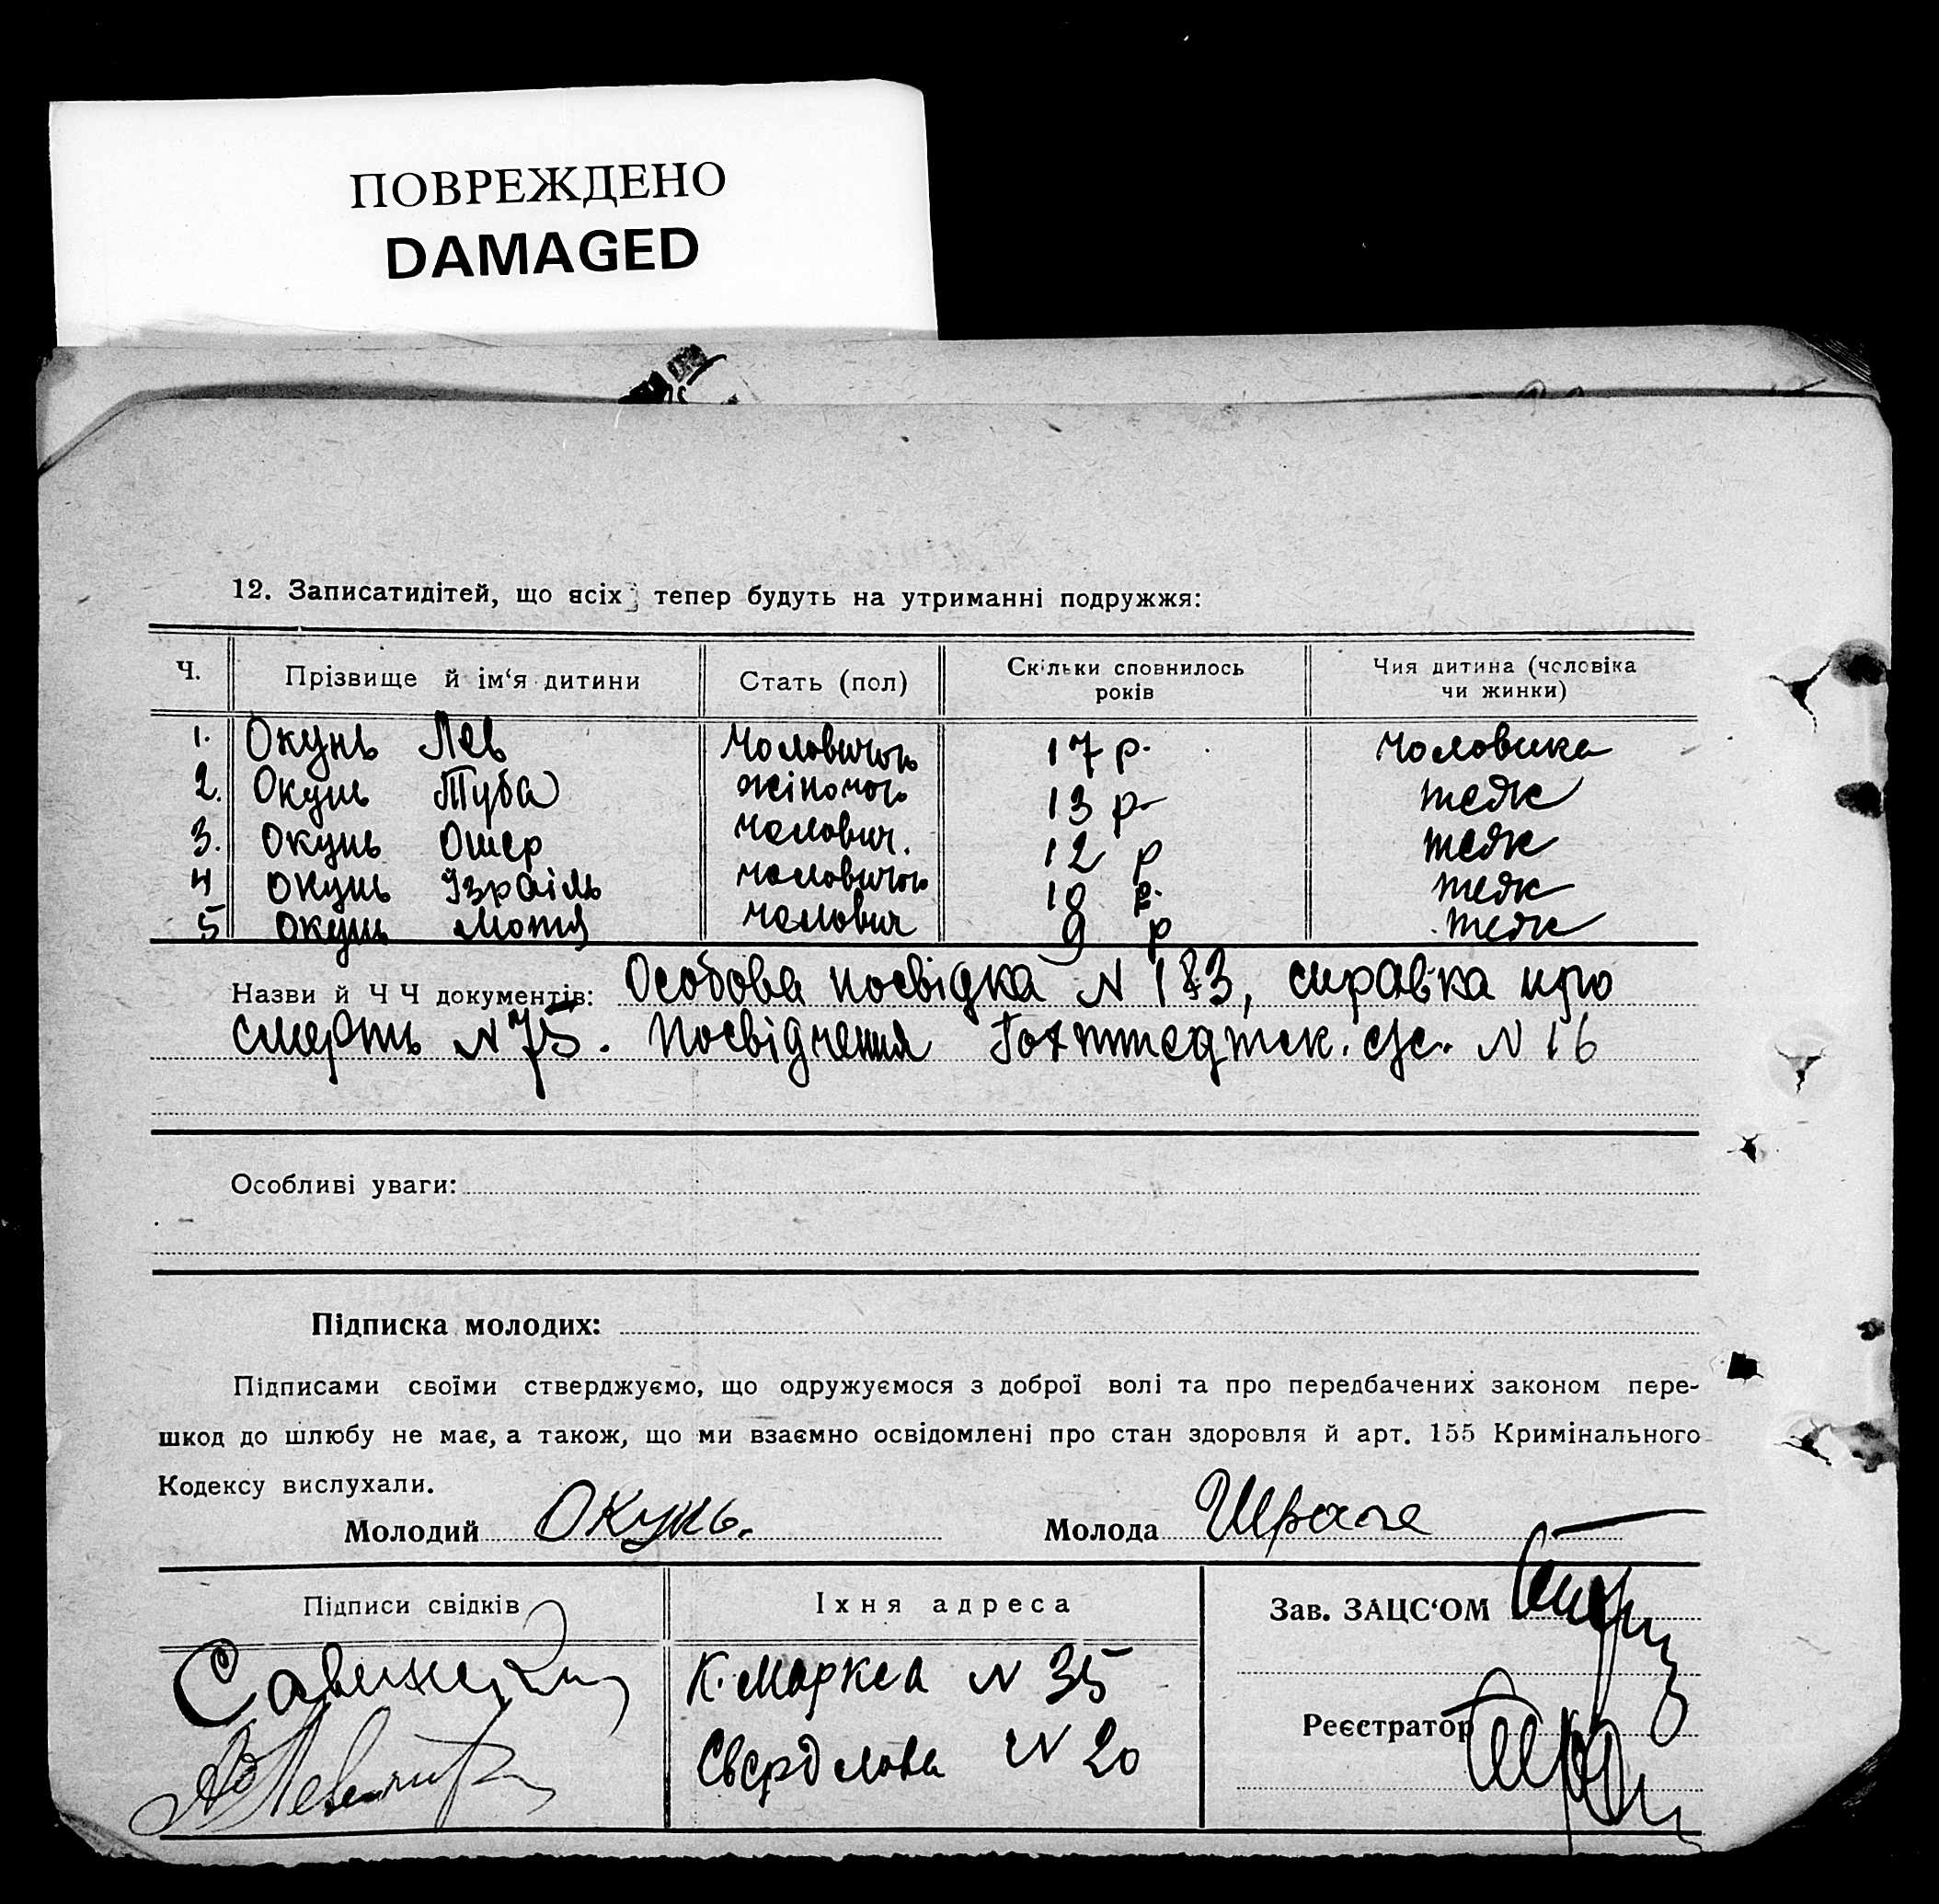 ПОВРЕЖДЕНО
DAMAGED
12. Записатидітей, що всіх тепер будуть на утриманні подружжя:
Ч. Прізвище й ім‘я дитини Стать (пол) Скільки сповнилось років Чия дитина (чоловіка чи жинки)
1. Окунь Лев чоловичого 17 р. чоловика
2. Окунь Туба жіночого 13 р. теж
3. Окунь Ошер чолович. 12 р теж
4 Окунь Ізраіль чоловичого 10 р. теж
5 Окунь Мотя чолович 9 р теж
Назви й Ч Ч документів: Особова посвідка N 183, справка про
смерть N 75. Посвідчення N 16
Особливі уваги:
Підписка молодих:
Підписами своїми стверджуємо, що одружуємося з доброї волі та про передбачених законом пере-
шкод до шлюбу не має, а також, що ми взаємно освідомлені про стан здоровля й арт. 155 Кримінального
Кодексу вислухали.
Молодий Окунь. Молода
Підписи свідків Їхня адреса Зав. ЗАЦС‘ОМ
К. Маркса N 35
Реєстратор
Свердлова N 20